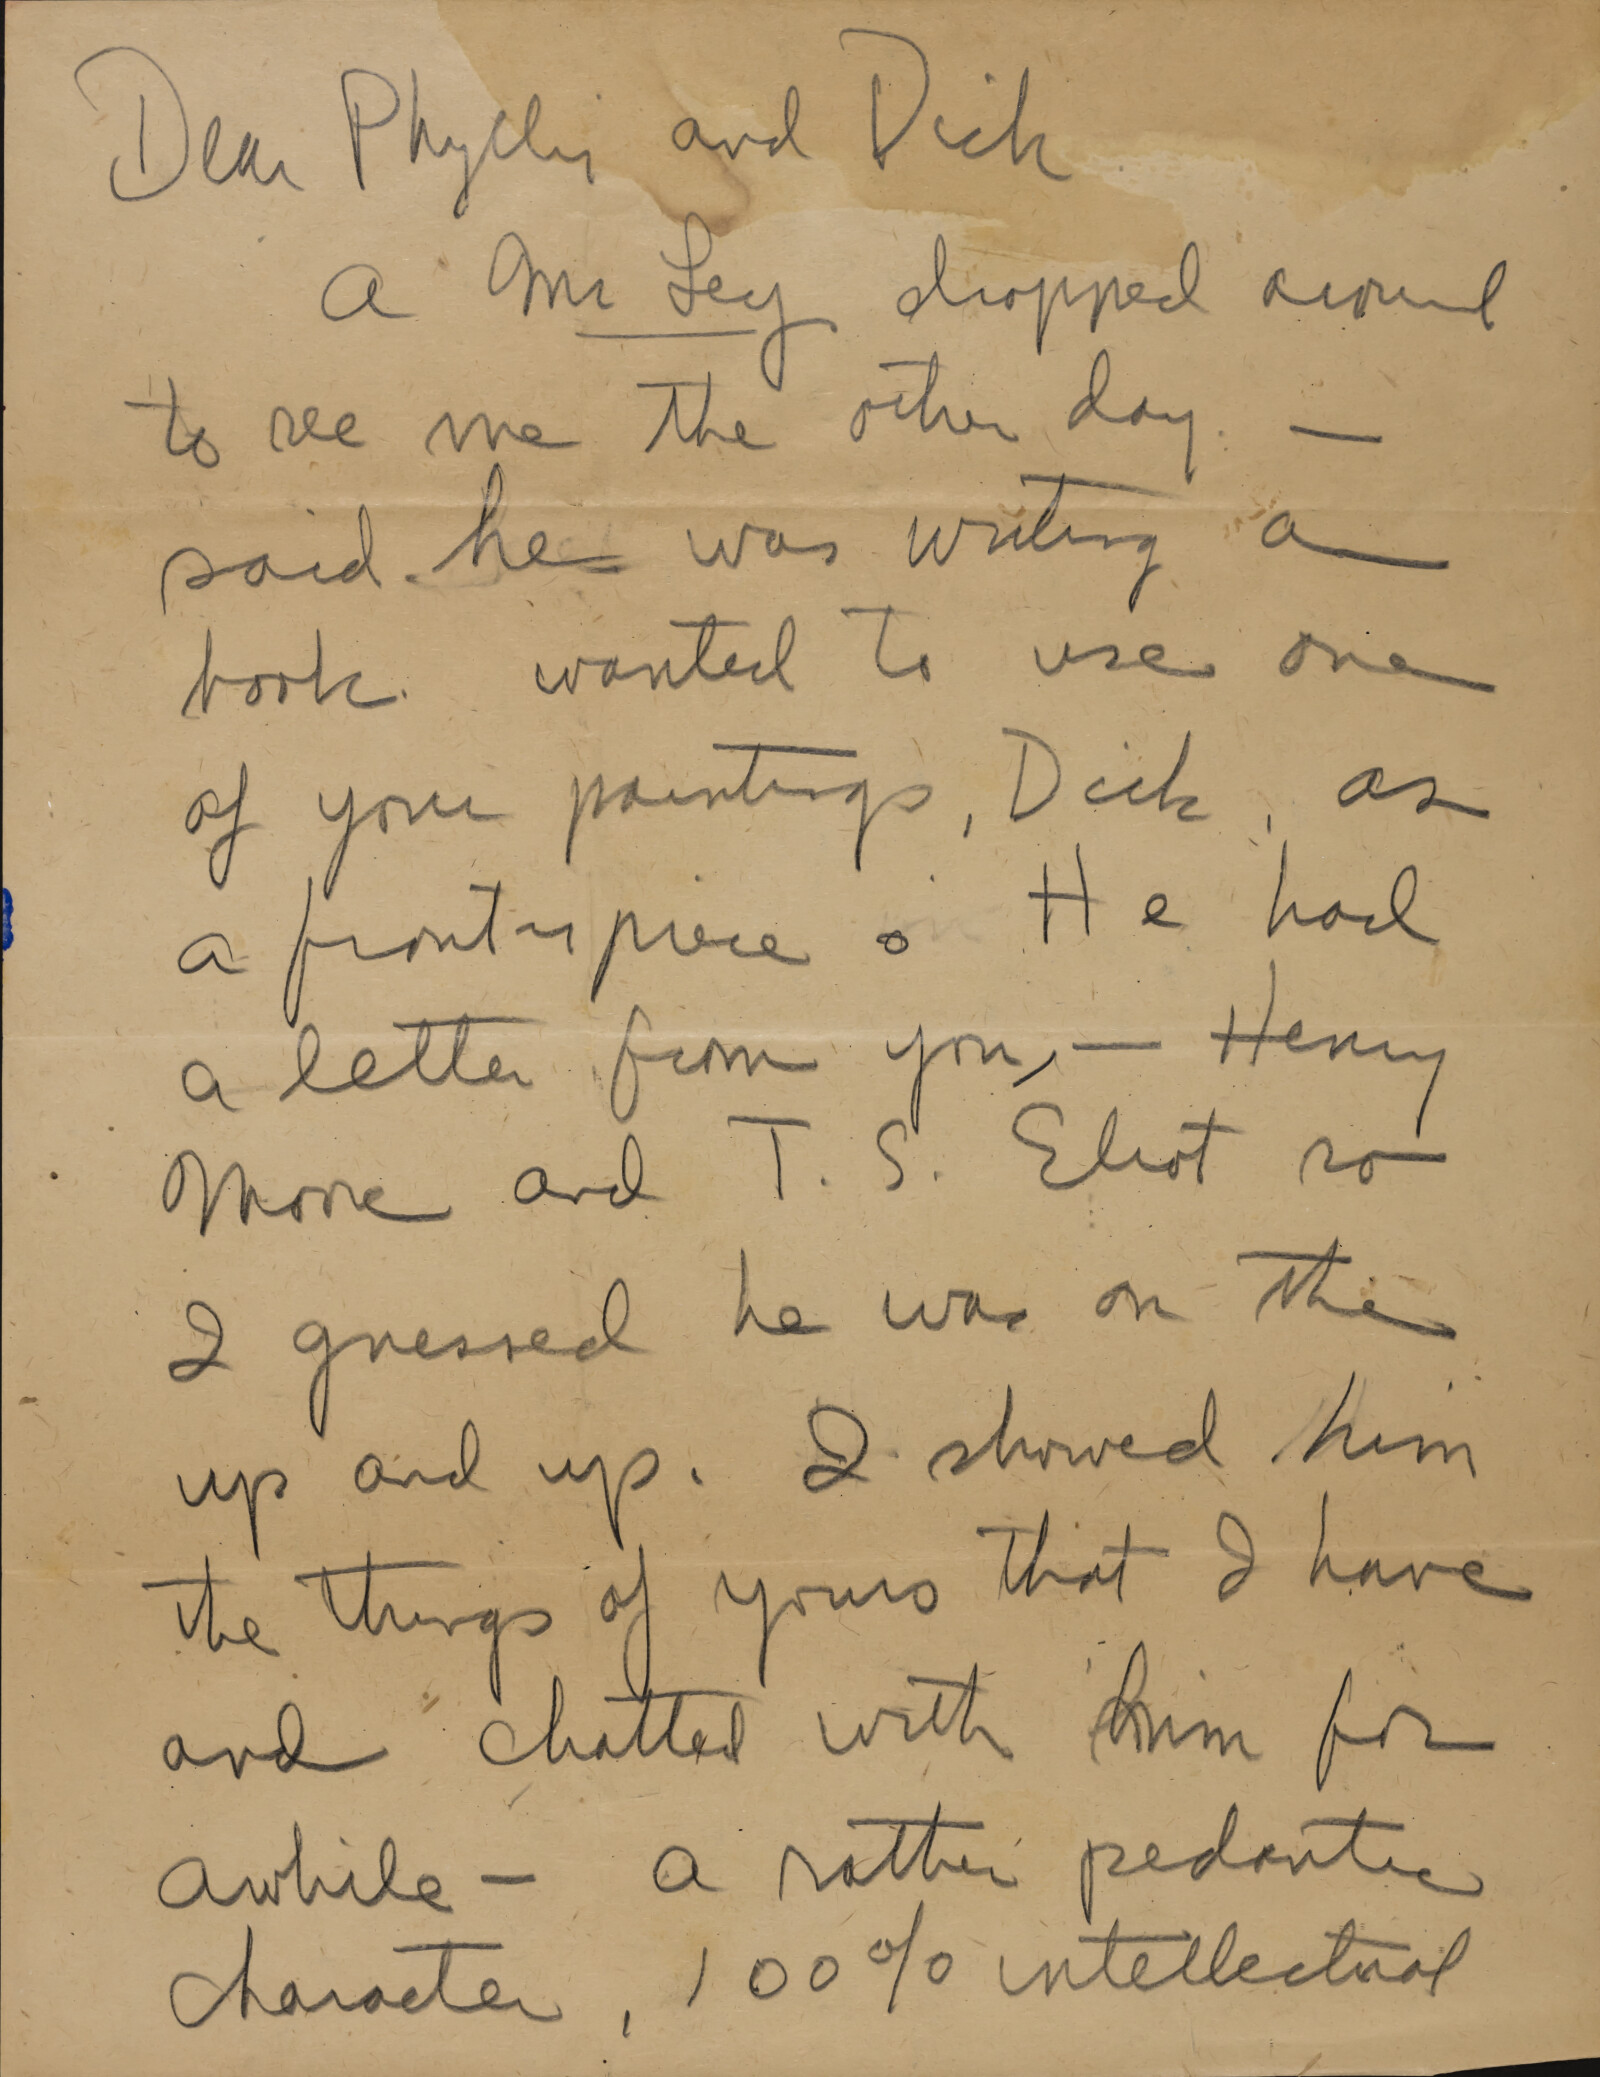 Dear Phyllis and Dick
A Mr Ley dropped around
to see me the other day. —
said he was writing a
book. wanted to use one
of your paintings, Dick, as
a frontispiece. He had
a letter from you, — Henry
Moore and T. S. Eliot so
I guessed he was on the
up and up. I showed him
the things of yours that I have
and chatted with him for
awhile — a rather pedantic
character, 100% intellectual